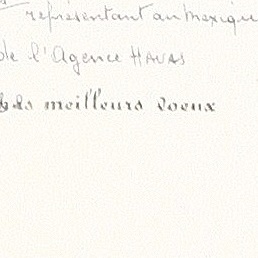 représentant au Mexique
de l'Agence HAVAS
meilleurs voeux